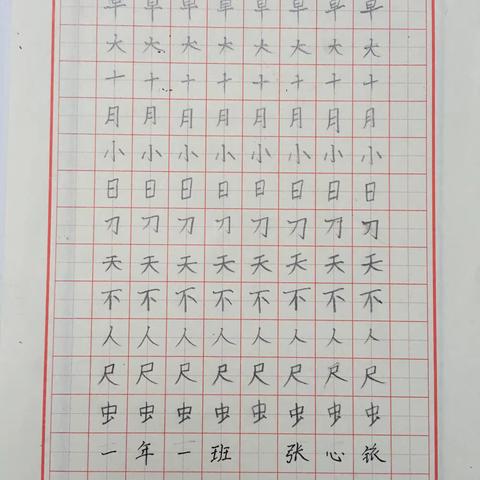 大大大大大大大大
十十十十十十十十
月月月月月月月月
小小小小小小小小
日日日日日日日日
刀刀刀刀刀刀刀刀
天天天天天天天天
不不不不不不不不
人人人人人人人人
尺尺尺尺尺尺尺尺
虫虫虫虫虫虫虫虫
一年一班 张心